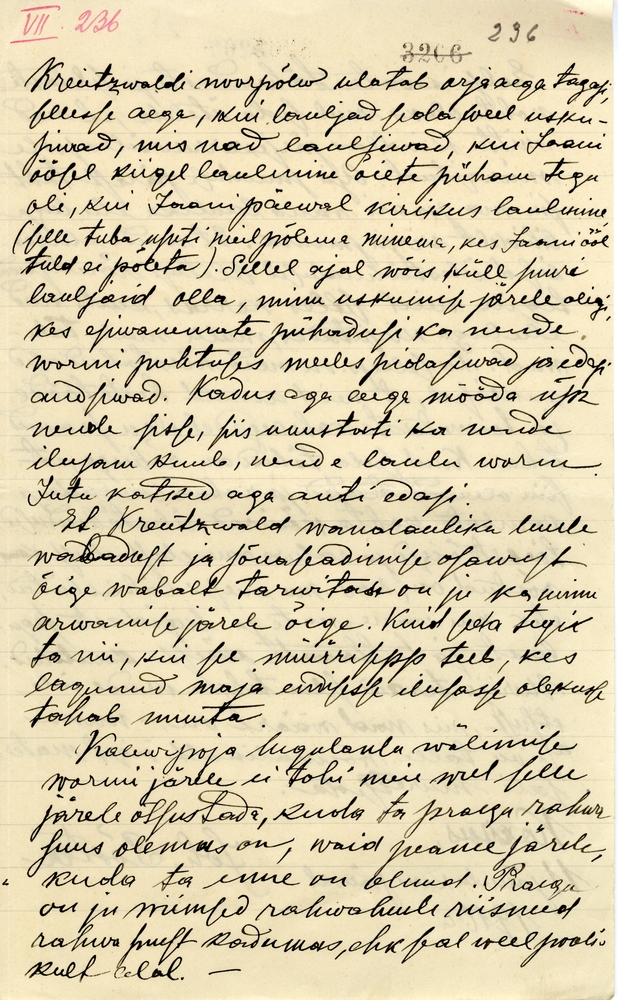 VII. 236
3266 236
Kreutzwaldi noorpõlw ulatab orjaaega tagasi,
sellesse aega, kui lauljad seda weel usku-
siwad, mis nad laulsiwad, kui Jaani
öösel kiigel laulmine õiete püham tegu
oli, kui Jaani päewal kirikus laulmine,
(selle tuba usuti meil põlema minema, kes Jaani ööl
tuld ei põleta). Sellel ajal wõis küll suuri
lauljaid olla, minu uskumise järele oligi,
kes esiwanemate pühadusi ka nende
wormi puhtuses meeles pidasiwad ja edasi
andsiwad. Kadus aga aega mööda usk
nende sisse, siis unustati ka nende
ilusam kuub, nende laulu worm.
Jutu katked aga anti edasi.
Et Kreutzwald wanalauliku luule
wabadust ja sõnaseadimise osawust
õige wabalt tarwitas on ju ka minu
arwamise järele õige. Kuid seda tegi
ta nii, kui see müürissepp teeb, kes
lagunud maja endisesse ilusasse olekusse
tahab muuta.
Kalewipoja lugulaulu wälimise
wormi järele ei tohi meie weel selle
järele otsustada, kuda ta praegu rahwa
suus olemas on, waid peame järele,
kuda ta enne on olnud. Praegu
on ju wiimsed rahwaluule riismed
rahwa suust kadumas, ehk seal weel pooli-
kult alal. —